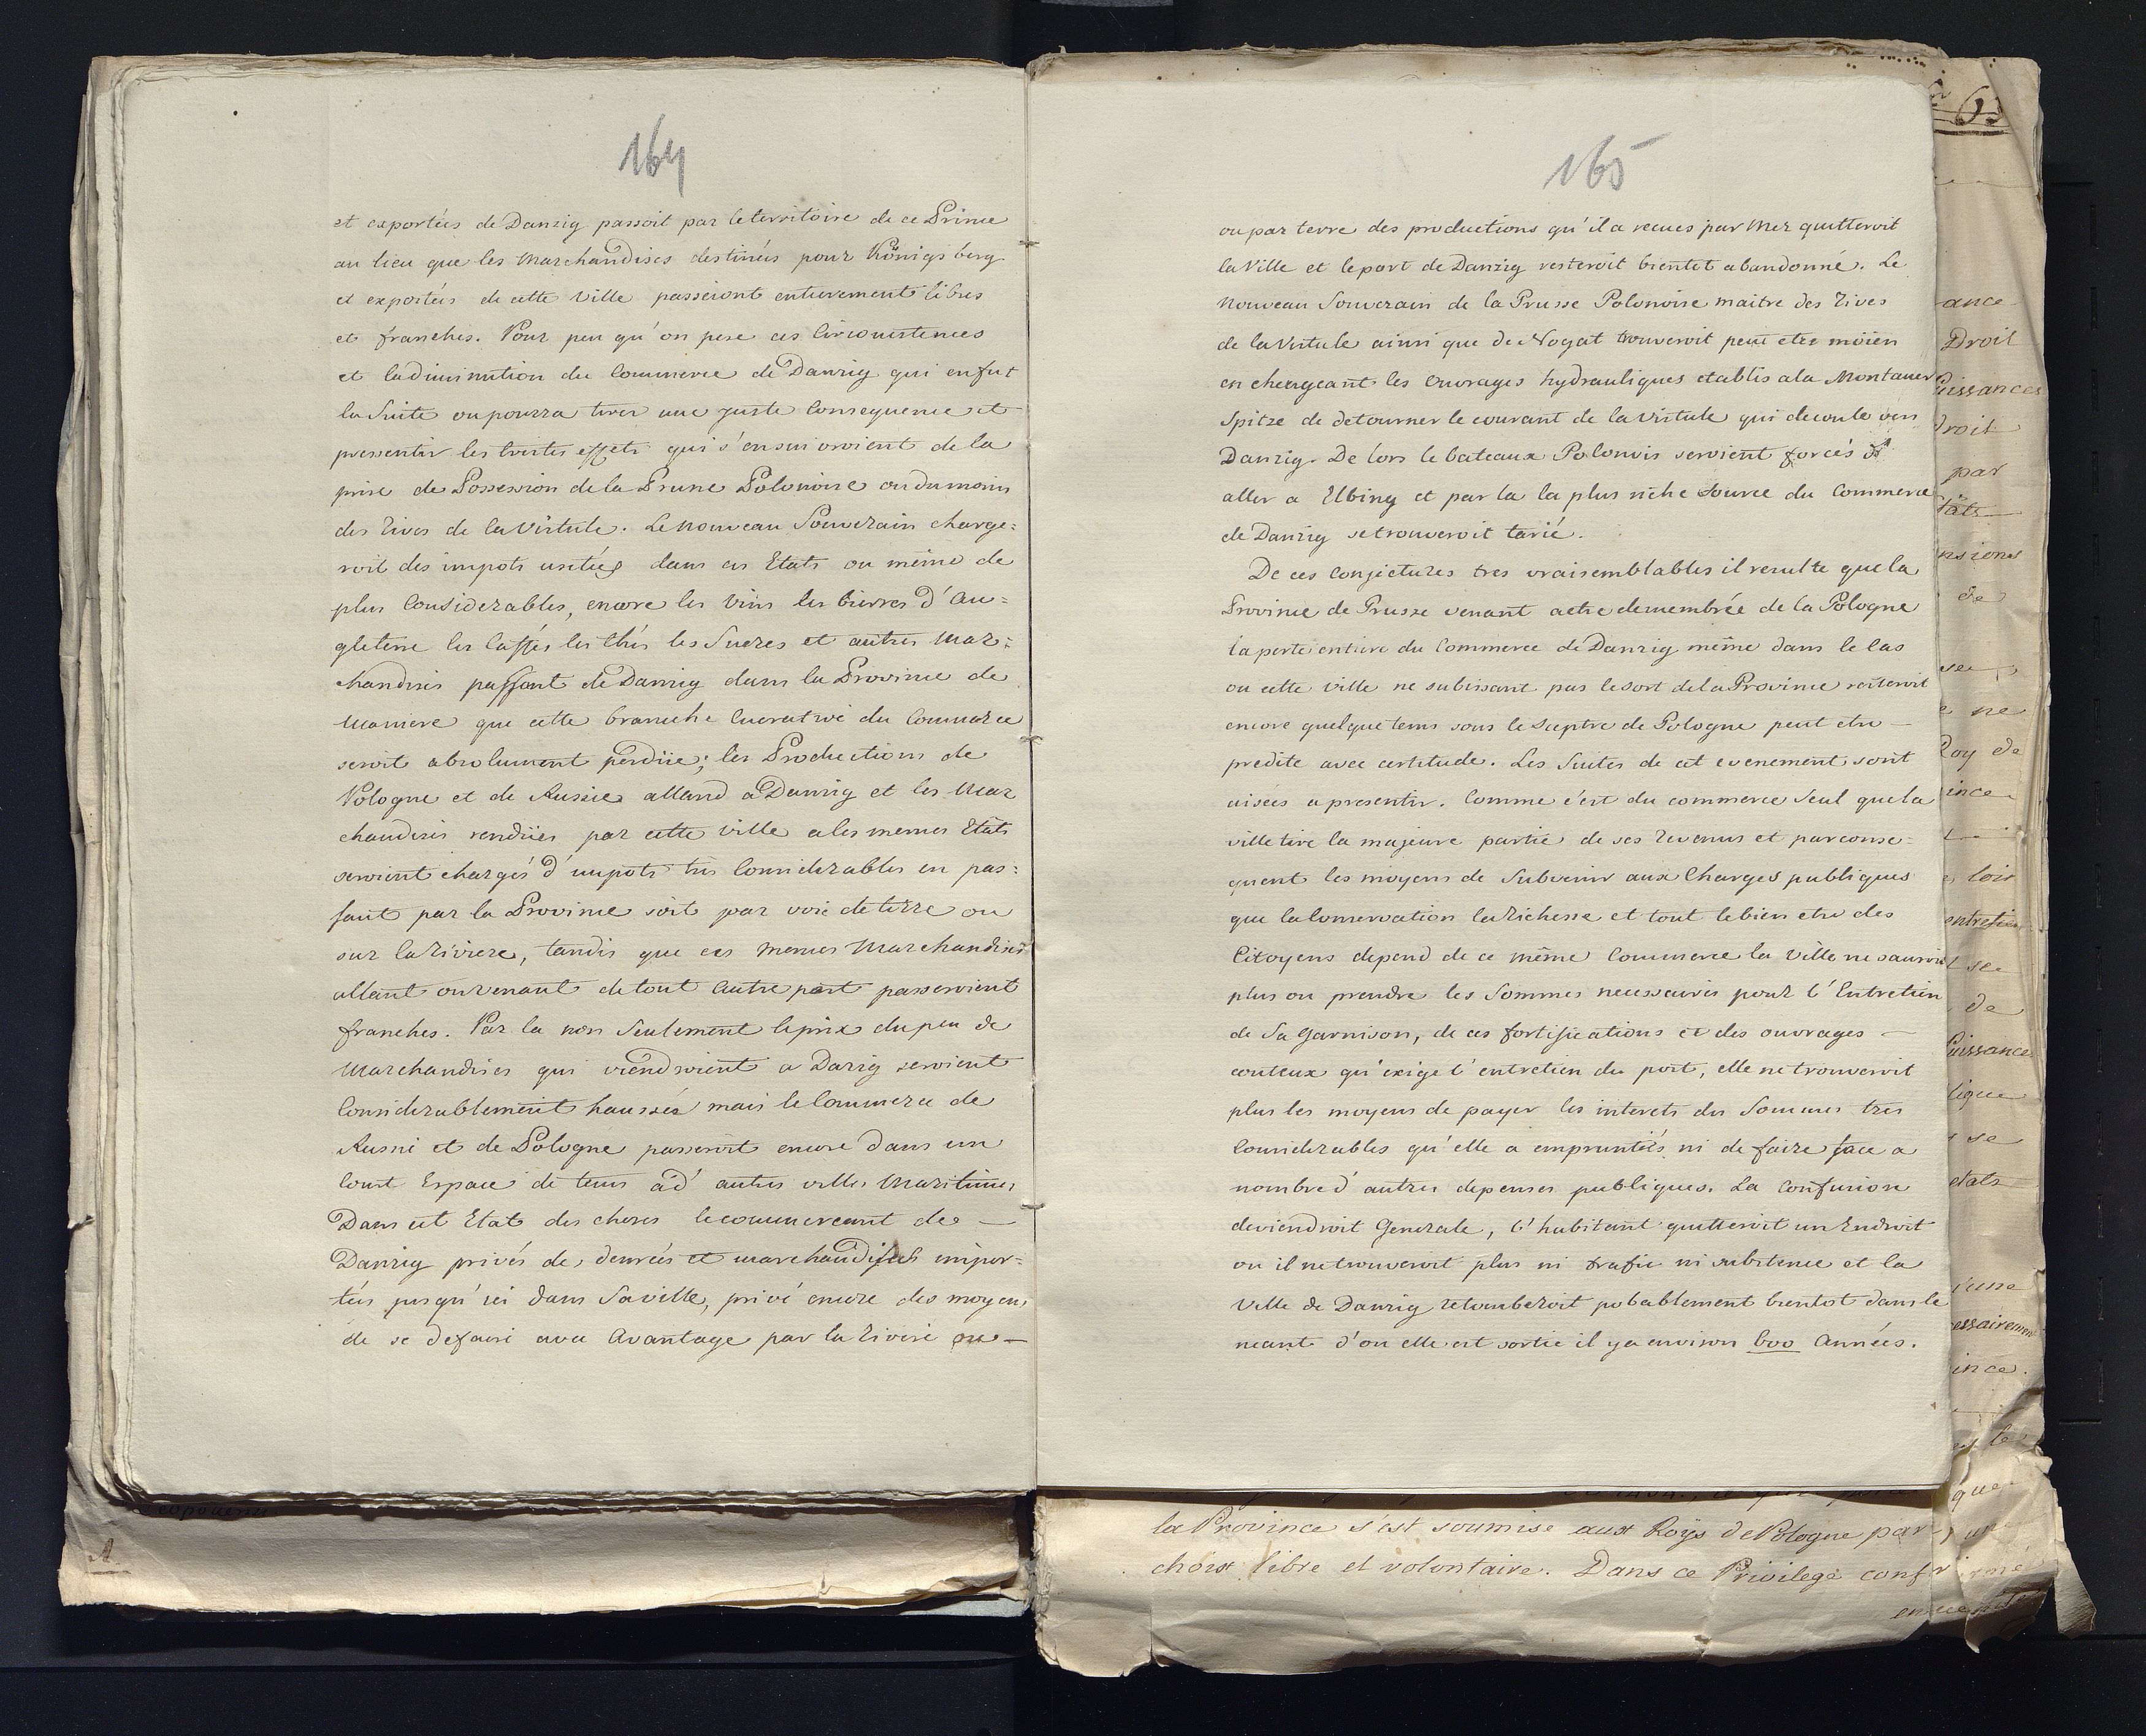 164
et exportées de Danzig passoit par le territoire de ce Prince
au lieu que les Marchandises destinées pour Königsberg
et exportées de cette Ville passeiont entierement libres
et franches. Pour peu qu'on pese ces Circonstences
et la diminution du Commerce de Danzig qui en fut
la Suite on pourra tirer une juste Consequence et
pressentir les tristes effets qui s'ensuivroient de la
prise de Possession de la Prusse Polonoise ou du moins
des Rives de la Vistule. Le Nouveau Souverain charge=
roit des impots usités dans ces Etats ou même de
plus Considerables, encore les Vins les bierres d'An=
gleterre les Caffés les thés les Sucres et autres Mar=
chandises passant de Danzig dans la Province de
Maniere que cette branche lucrative du Commerce
seroit absolument perdüe; les Productions de
Pologne et de Russie alland a Danzig et les Mar
chandises rendües par cette ville a les memes Etats
seroient chargés d'impots tres Considerables en pas=
sant par la Province soit par voie de terre ou
sur la Riviere, tandis que ces memes Marchandises
allant ou venant de tout autre part passeroient
franches. Par la non Seulement le prix du peu de
Marchandises qui viendroient a Dazig seroient
Considerablement haussés mais le Commerce de
Russie et de Pologne passeroit encore dans un
Court Espace de tems a d'autres villes Maritimes
Dans cet Etat des choses le commercant de —
Danzig privés des denrées et marchandises impor=
tés jusqu'ici dans Sa ville, privé encore des moyens
de se defaire avec Avantage par la Riviere ou —
165
ou par terre des productions qu'il a recues par Mer quitteroit
la Ville et le port de Danzig resteroit bientot abandonné. Le
Nouveau Souverain de la Prusse Polonoise maitre des Rives
de la Vistule ainsi que de Nogat trouveroit peut etre moïen
en chengeant les Ouvrages hydrauliques etablis a la Montauer
Spitze de detourner le courant de la Vistule qui decoule vers
Danzig. De lors le bateaux Polonois seroient forcés d'
aller a Elbing et par la la plus riche Source du Commerce
de Danzig se trouveroit tarié.
De ces Conjectures tres vraisemblables il resulte que la
Province de Prusse venant a etre demembrée de la Pologne
la perte entiere du Commerce de Danzig même dans le Cas
ou cette Ville ne subissant pas le sort de la Province resteroit
encore quelque tems sous le Sceptre de Pologne peut etre —
predite avec certitude. Les Suites de cet evenement sont
aisées a presentir. Comme c'est du commerce Seul que la
ville tire la majeure partie de ses Revenus et par conse=
quent les moyens de Subvenir aux Charges publiques
que la Conservation la Richesse et tout le bien etre des
Citoyens depend de ce même Commerce la Ville ne sauroit
plus ou prendre les Sommes necessaires pour l'Entretien
de Sa Garnison, de ces fortifications et des ouvrages —
couteux qu'exige l'entretien du port, elle ne trouveroit
plus les moyens de payer les interets des Sommes tres
Considerables qu'elle a empruntés ni de faire face a
nombre d'autres depenses publiques. La Confusion
deviendroit Generale, l'habitant quitteroit un Endroit
ou il ne trouveroit plus ni trafic ni subsitence et la
Ville de Danzig retomberoit pobablement bientot dans le
neant d'ou elle est sortie il y a environ 600 Années.
la Province s'est soumise aux Roÿs de Pologne par
choix libre et volontaire. Dans ce Privilege conf
ance
Droit
uissances
droit
par
nsions
de
ne
Roy de
ince
lois
entretien
se
de
uissance
lique
se
etats
essairement
ince.
que